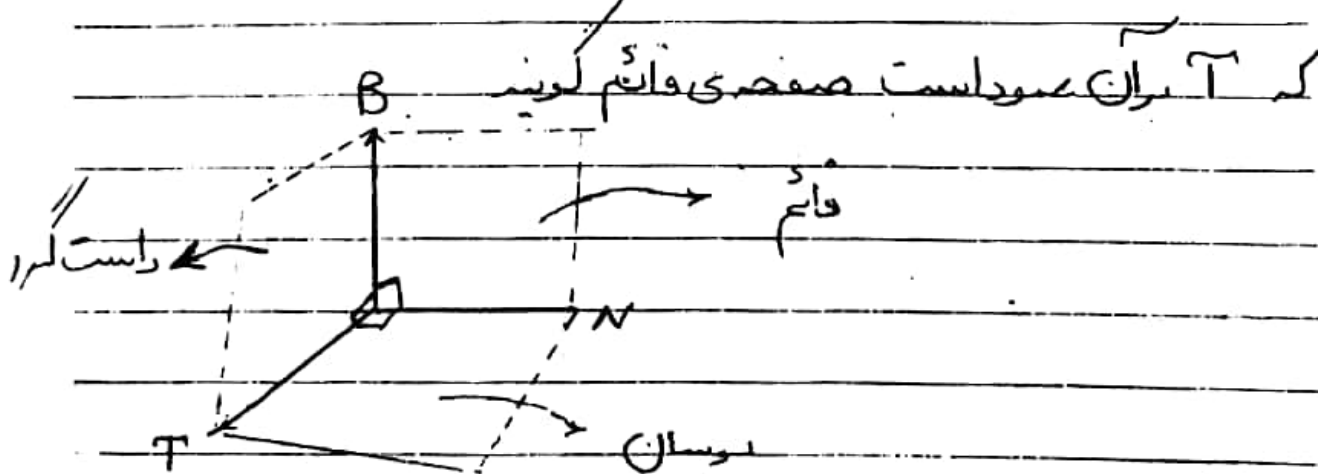 که T برآن عمود است صفحه‌ی قائم گویند
B
قائم
راست گرد
N
T